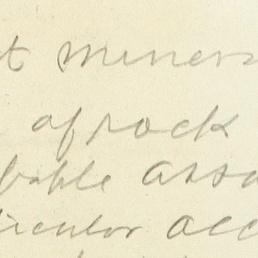 t miner
of rock
bable asso
ticular occ